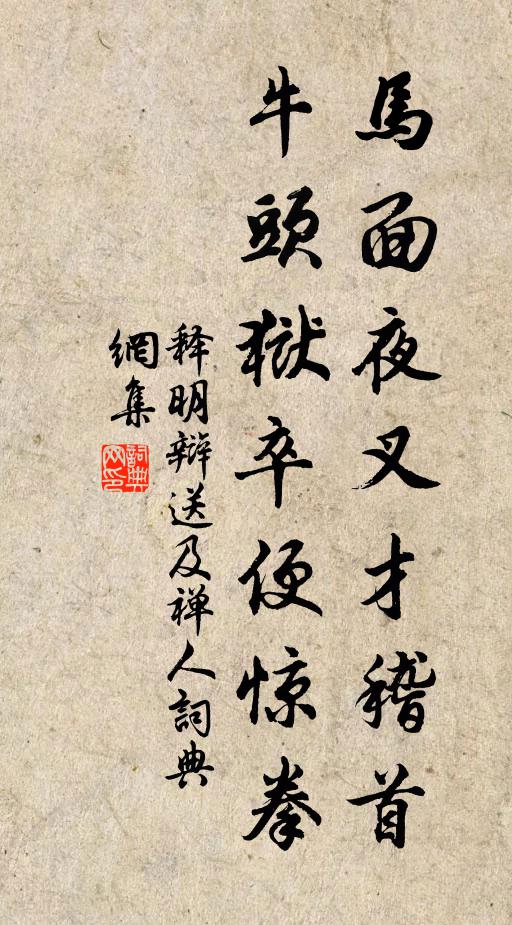 馬面夜叉才稽首
牛頭獄卒便惊拳
释明辩送及禅人詞典
網集
詞典
网印